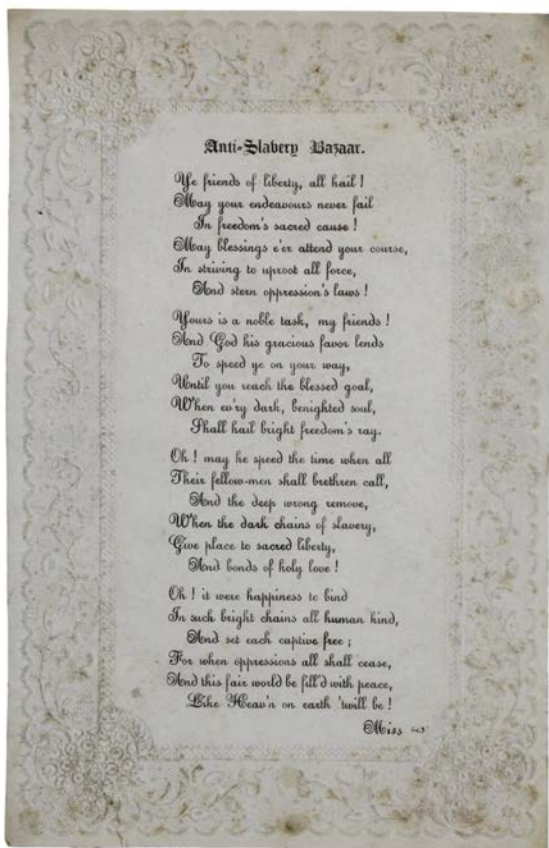 Anti-Slavery Bazaar.
Ye friends of liberty, all hail !
May your endeavours never fail
In freedom's sacred cause !
May blessings e'er attend your course,
In striving to uproot all force,
And stern oppression's laws !
Yours is a noble task, my friends !
And God his gracious favor lends
To speed ye on your way,
Until you reach the blessed goal,
When ev'ry dark, benighted soul,
Shall hail bright freedom's ray.
Oh ! may he speed the time when all
Their fellow-men shall brethren call,
And the deep wrong remove,
When the dark chains of slavery,
Give place to sacred liberty,
And bonds of holy love !
Oh ! it were happiness to bind
In such bright chains all human kind,
And set each captive free ;
For when oppressions all shall cease,
And this fair world be fill'd with peace,
Like Heav'n on earth 'twill be !
Miss